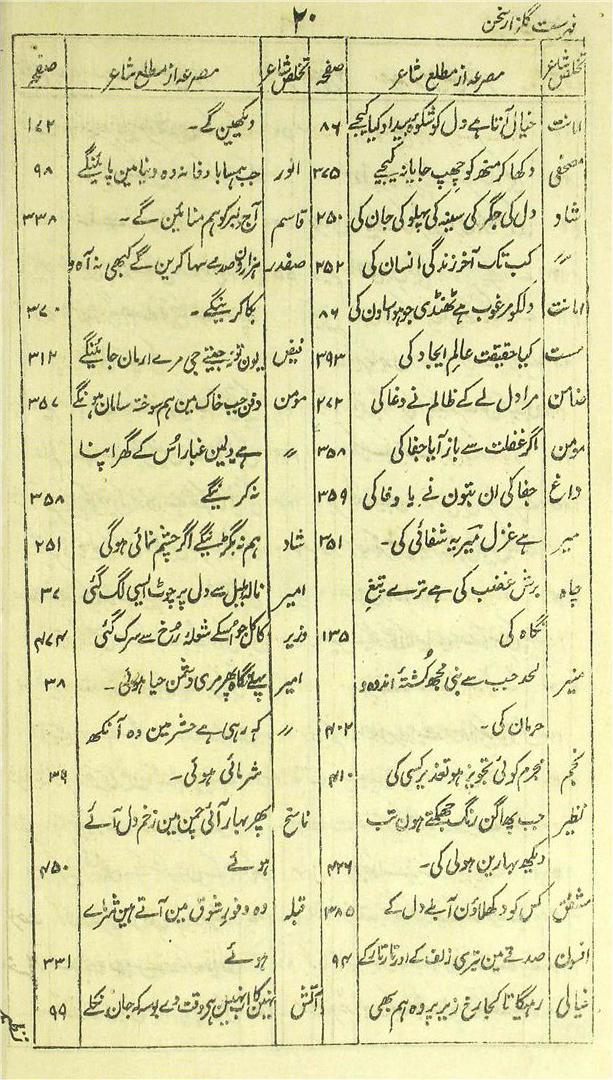 فہرست گلزار سخن
۲۰
تخلص شاعر مصرعہ از مطلع شاعر صفحہ
امانت خیال آتا ہے دل کو شکوۂ بیداد کیا کیجیے ۸۶
مصحفی دکھا کر منھ کو چھپ جایا نہ کیجیے ۳۷۵
شاد دل کی جگر کی سینہ کی پہلو کی جان کی ۲۵۰
〃 کب تک آخر زندگی انسان کی ۲۵۲
امانت دلکو مرغوب ہے ٹھنڈی جو ہوا ساون کی ۸۶
مست کیا حقیقت عالم ایجاد کی ۳۹۳
ضامن مرا دل لے کے ظالم نے دغا کی ۲۷۲
مومن اگر غفلت سے باز آیا جفا کی ۳۵۸
داغ جفا کی ان بتون نے یا وفا کی ۳۵۹
میر ہے غزل میر یہ شفائی کی۔ ۳۵۱
جاہ برش غضب کی ہے ترے تیغ
نگاہ کی ۱۳۵
منیر لحد حب سے بنی مجھ کُشتۂ اندوہ و
حرمان کی۔ ۴۰۲
نجم مجرم کوئی تجویز ہو تعذیر کسی کی ۴۱۰
نظیر جب پھاگن رنگ جھمکتے ہون تب
دیکھ بہارین ہولی کی۔ ۴۲۶
مشفق کس کو دکھلاؤن آبلے دل کے ۳۸۵
افسون صدقے مین تیری زلف کے اور تار تار کے ۹۴
خیالی رہیگا تا کجا رخ زیر پردہ ہم بھی
تخلص شاعر مصرعہ از مطلع شاعر صفحہ
دیکھین گے۔ ۱۷۲
انور جب ہمسا با وفا نہ وہ دنیا مین پائینگے ۹۸
قاسم آج دلبر کو ہم منائین گے۔ ۳۳۸
صفدر ہزارون صدمے سہا کرین گے کبھی نہ آہ و
بکا کرینگے۔ ۳۷۰
فیض یون تو جیتے جی مرے ارمان جائینگے ۳۱۲
مومن دفن جب خاک مین ہم سوختہ سامان ہونگے ۳۵۷
〃 ہے دلمین غبار اُس کے گھر اپنا
نہ کرینگے ۳۵۸
شاد ہم نہ بگڑینگے اگر چشم نمائی ہوگی ۲۵۱
امیر نالۂ بلبل سے دل پر چوٹ ایسی لگ گئی ۳۷
وزیر کاکل جو اُسکے شعلۂ رُخ سے سرک گئی ۴۷۴
امیر پہلے نگاہ پھر مری دشمن حیا ہوئی۔ ۳۸
〃 کہ رہی ہے حشر مین وہ آنکھ
شرمائی ہوئی۔ ۳۹
ناسخ پھر بہار آئی چمن مین زخم دل آلے
ہوئے ۴۵۰
قبلہ وہ وفور شوق مین آتے ہین شرمائے
ہوئے ۳۳۱
آتش ہی وقت دے بوسہ کہ جان نکلے ۹۹